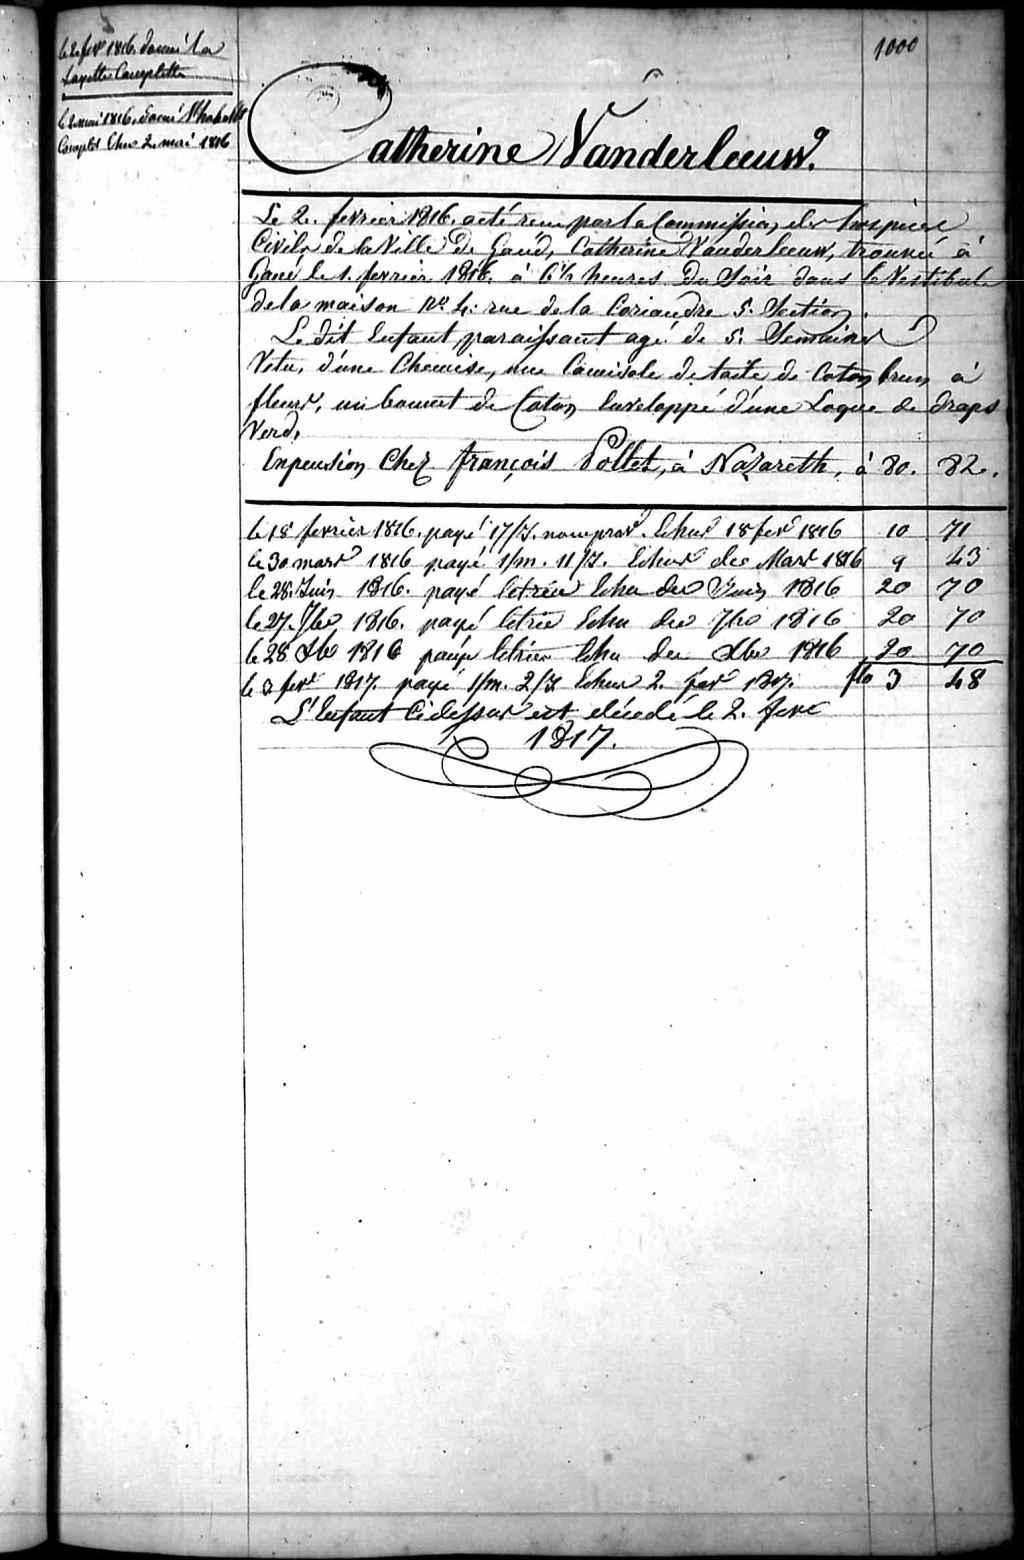 1000
le 2 fevr 1816. donné la
Layette Complette
le 2 mai 1816. donné
Complet Echu 2. mai 1816
Catherine Vanderleeuw.
Le 2. fevrier 1816. a été recu par la Commission des hospices
Civils de la Ville De Gand, Catherine Vanderleeuw, trouvée à
Gand le 1. fevrier 1816. à 6½ heures Du Soir dans le Vestibule
de la maison No. 4: rue de la Coriandre 5. Section.
Le dit Enfant paraissant agé de 5. Semaines
Vetu, d'une Chemise, une Camisole de taile de Coton brun à
fleurs, un bonnet de Coton Enveloppé d'une Loque de draps
Verd.
En pension Chez françois Pollet, à Nazareth, à 80. 82.
le 18 fevrier 1816. payé 17/J. nouv prov. Echus 18 fevr 1816 10 71
le 30 mars 1816 payé 1/m. 11/J. Echus des Mars 1816 9 43
le 28. Juin 1816. payé letrée Echu des Juin 1816 20 70
le 27. 7bre 1816. payé letrée Echu des 7bre 1816 20 70
le 28 Xbre 1816 payé letrée Echu des Xbre 1816 20 70
le 3 fevr 1817. payé 1/m. 2/J Echus 2. fevr 1817. flo 3 48
L'Enfant Cidessus est décedé le 2. fevr
1817.